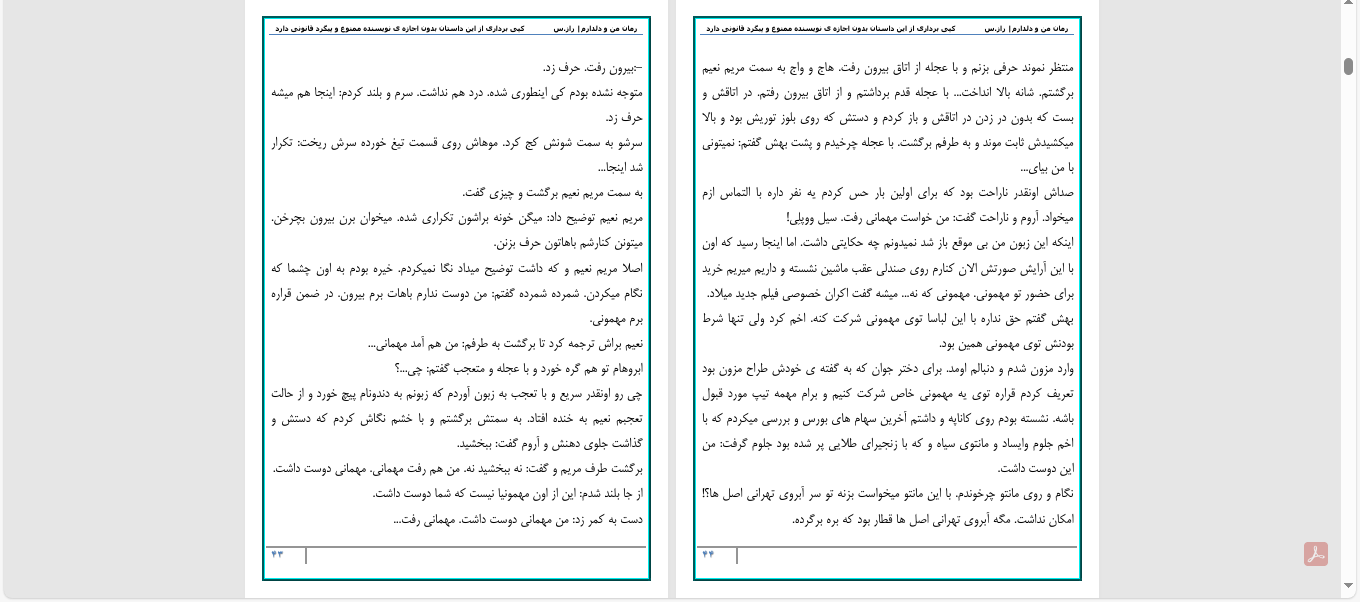 رمان من و دلدارم| راز.س کپی برداری از این داستان بدون اجازه ی نویسنده ممنوع و پیگرد قانونی دارد
–:بیرون رفت. حرف زد.
متوجه نشده بودم کی اینطوری شده. درد هم نداشت. سرم و بلند کردم: اینجا هم میشه
حرف زد.
سرشو به سمت شونش کج کرد. موهاش روی قسمت تیغ خورده سرش ریخت: تکرار
شد اینجا...
به سمت مریم نعیم برگشت و چیزی گفت.
مریم نعیم توضیح داد: میگن خونه براشون تکراری شده. میخوان برن بیرون بچرخن.
میتونن کنارشم باهاتون حرف بزنن.
اصلا مریم نعیم و که داشت توضیح میداد نگا نمیکردم. خیره بودم به اون چشما که
نگام میکردن. شمرده شمرده گفتم: من دوست ندارم باهات برم بیرون. در ضمن قراره
برم مهمونی.
نعیم براش ترجمه کرد تا برگشت به طرفم: من هم آمد مهمانی...
ابروهام تو هم گره خورد و با عجله و متعجب گفتم: چی...؟
چی رو اونقدر سریع و با تعجب به زبون آوردم که زبونم به دندونام پیچ خورد و از حالت
تعجبم نعیم به خنده افتاد. به سمتش برگشتم و با خشم نگاش کردم که دستش و
گذاشت جلوی دهنش و آروم گفت: ببخشید.
برگشت طرف مریم و گفت: نه ببخشید نه. من هم رفت مهمانی. مهمانی دوست داشت.
از جا بلند شدم: این از اون مهمونیا نیست که شما دوست داشت.
دست به کمر زد: من مهمانی دوست داشت. مهمانی رفت...
۴۳
رمان من و دلدارم| راز.س کپی برداری از این داستان بدون اجازه ی نویسنده ممنوع و پیگرد قانونی دارد
منتظر نموند حرفی بزنم و با عجله از اتاق بیرون رفت. هاج و واج به سمت مریم نعیم
برگشتم. شانه بالا انداخت... با عجله قدم برداشتم و از اتاق بیرون رفتم. در اتاقش و
بست که بدون در زدن در اتاقش و باز کردم و دستش که روی بلوز توریش بود و بالا
میکشیدش ثابت موند و به طرفم برگشت. با عجله چرخیدم و پشت بهش گفتم: نمیتونی
با من بیای...
صداش اونقدر ناراحت بود که برای اولین بار حس کردم یه نفر داره با التماس ازم
میخواد. آروم و ناراحت گفت: من خواست مهمانی رفت. سیل ووپلی!
اینکه این زبون من بی موقع باز شد نمیدونم چه حکایتی داشت. اما اینجا رسید که اون
با این آرایش صورتش الان کنارم روی صندلی عقب ماشین نشسته و داریم میریم خرید
برای حضور تو مهمونی. مهمونی که نه... میشه گفت اکران خصوصی فیلم جدید میلاد.
بهش گفتم حق نداره با این لباسا توی مهمونی شرکت کنه. اخم کرد ولی تنها شرط
بودنش توی مهمونی همین بود.
وارد مزون شدم و دنبالم اومد. برای دختر جوان که به گفته ی خودش طراح مزون بود
تعریف کردم قراره توی یه مهمونی خاص شرکت کنیم و برام مهمه تیپ مورد قبول
باشه. نشسته بودم روی کاناپه و داشتم آخرین سهام های بورس و بررسی میکردم که با
اخم جلوم وایساد و مانتوی سیاه و که با زنجیرای طلایی پر شده بود جلوم گرفت: من
این دوست داشت.
نگام و روی مانتو چرخوندم. با این مانتو میخواست بزنه تو سر آبروی تهرانی اصل ها؟!
امکان نداشت. مگه آبروی تهرانی اصل ها قطار بود که بره برگرده.
۴۴